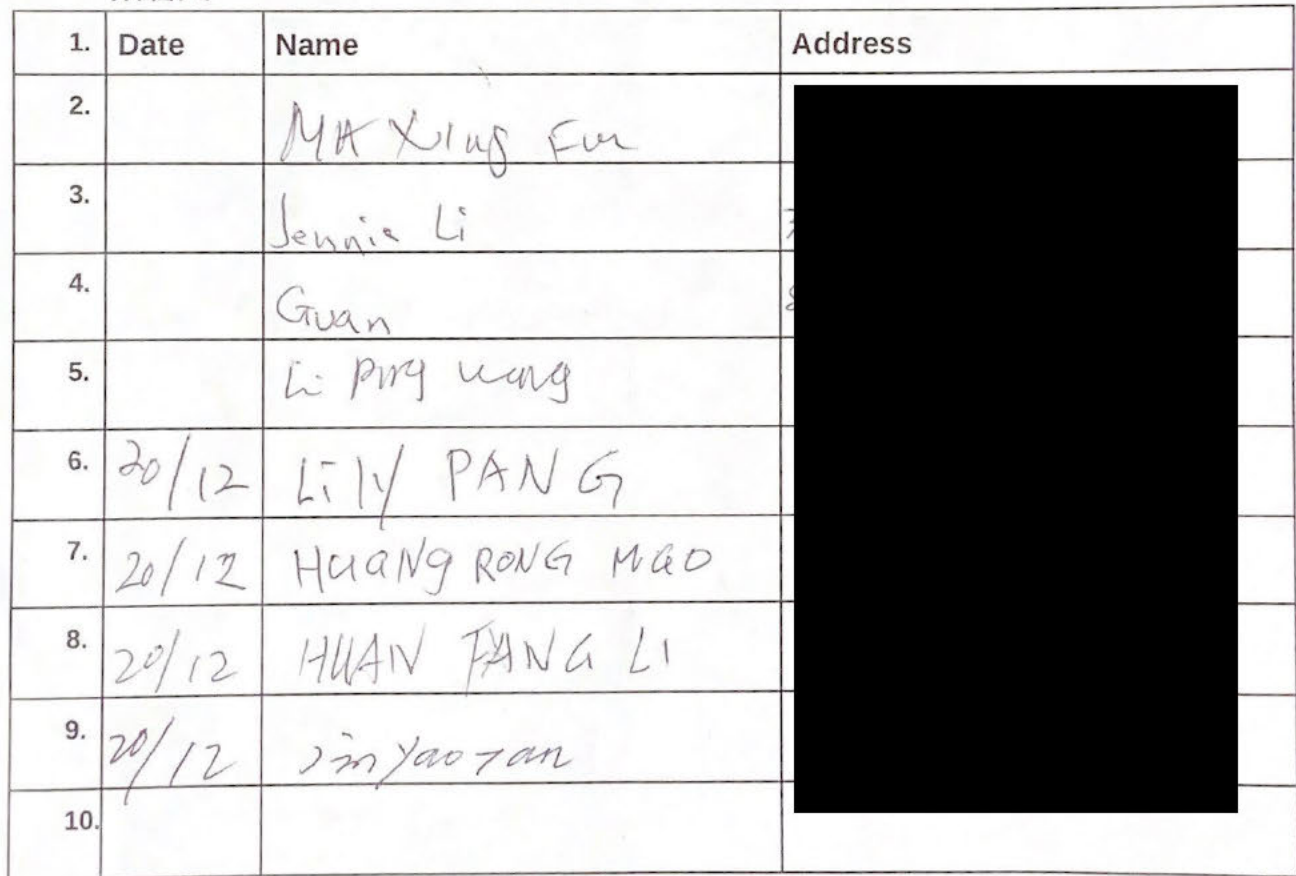 1. Date Name Address
2. MA Xing Fun
3. Jennie Li
4. Guan
5. Li Ping Wang
6. 20/12 Lily PANG
7. 20/12 HUANG RONG MAO
8. 20/12 HUAN FANG LI
9. 20/12 Jin Yao Tan
10.